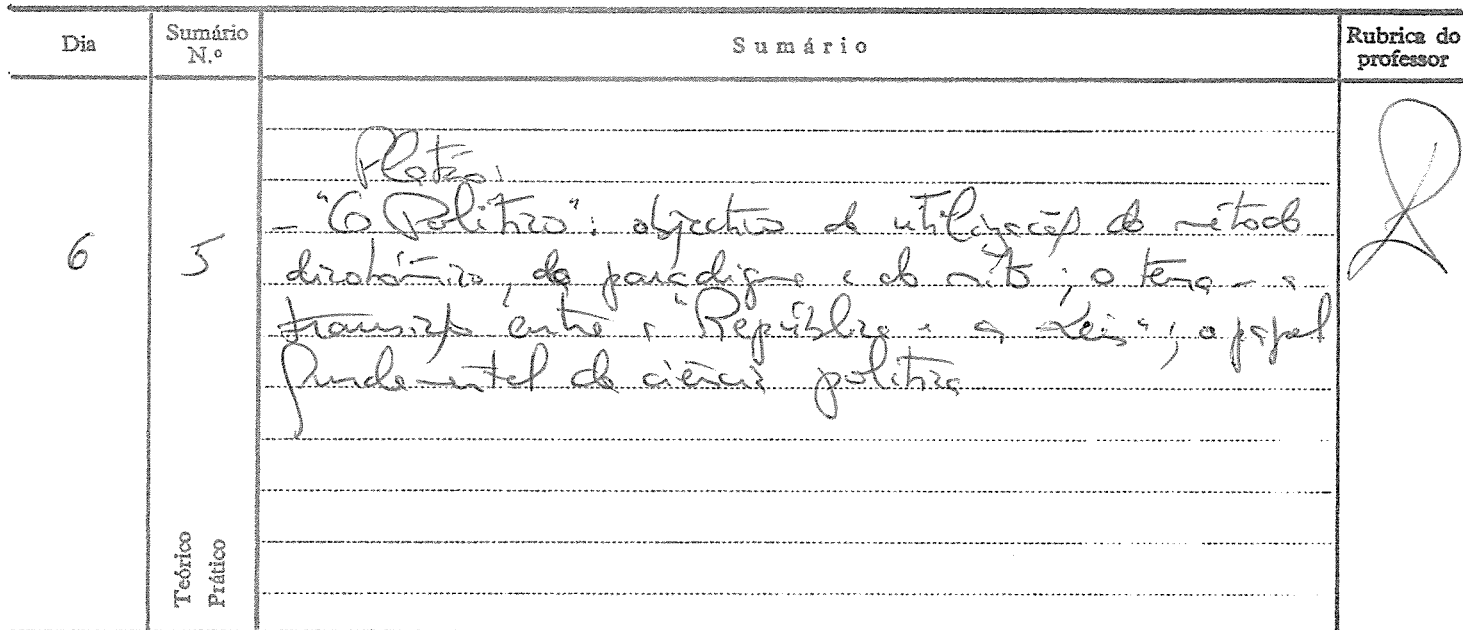 Dia
Sumário N.º
Sumário
Rubrica do professor
6
5
Platão:
- "O Político": objectivo da utilização do método
dicotómico, do paradigma e do mito; o tema - a
transição entre a "República" e as "Leis"; o papel
fundamental da ciência política
Teórico
Prático